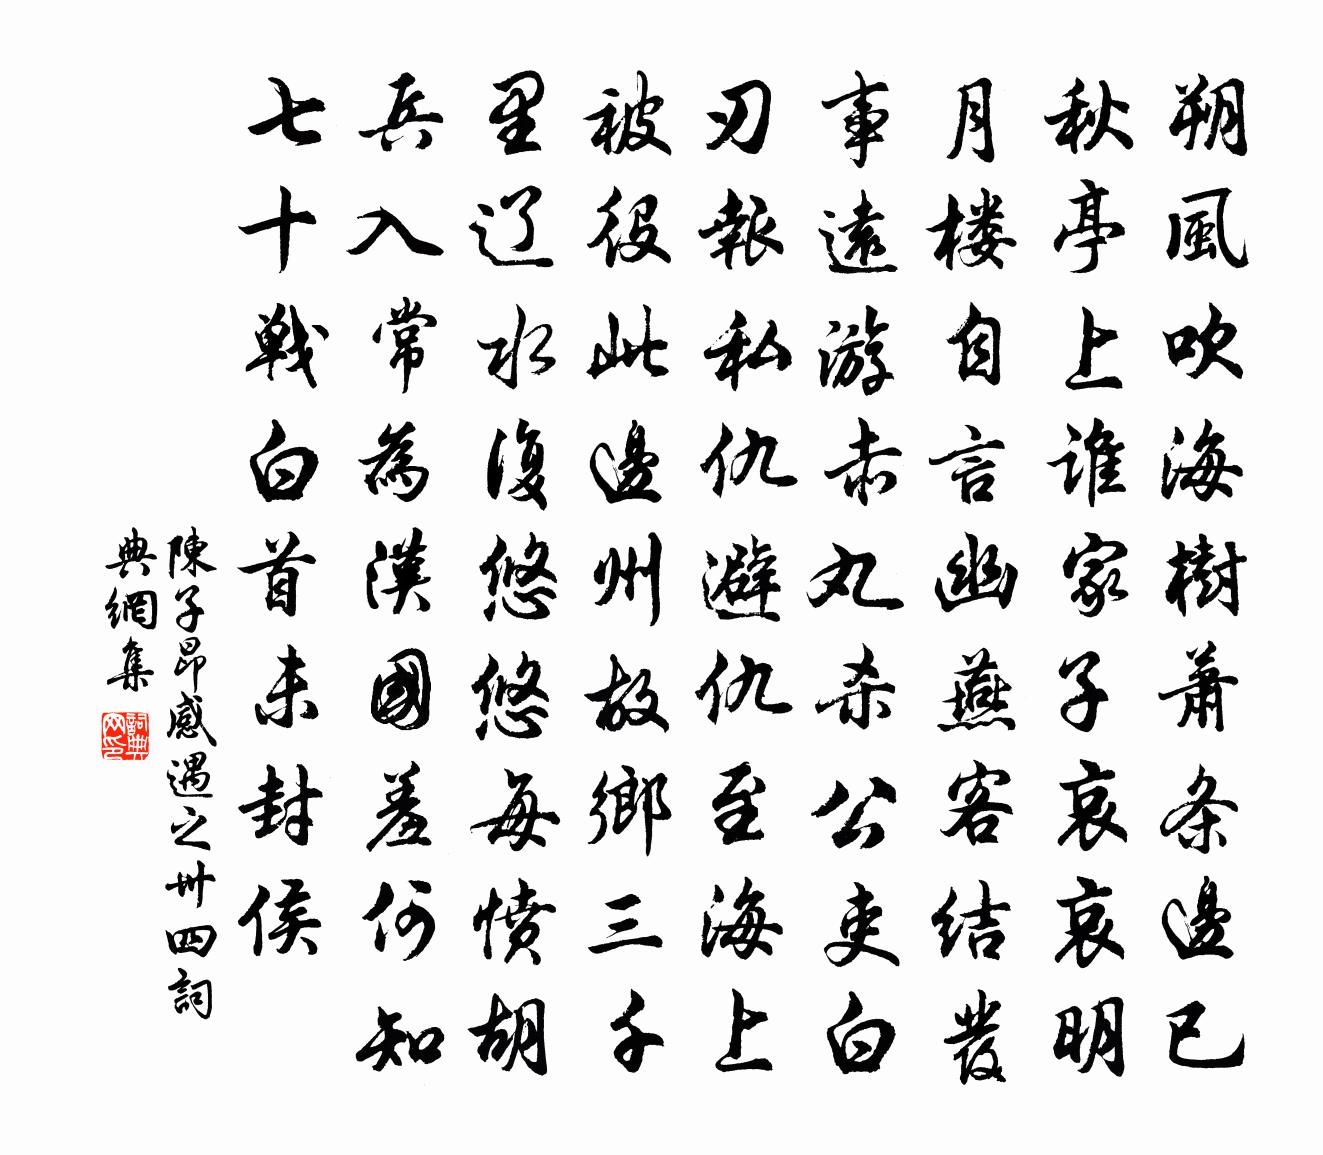 朔風吹海樹萧条邊已
秋亭上谁家子哀哀明
月楼自言幽燕客结發
事遠游赤丸杀公吏白
刃報私仇避仇至海上
被役此邊州故鄉三千
里辽水復悠悠每愤胡
兵入常為漢國羞何知
七十戦白首未封侯
陳子昂感遇之卅四詞
典網集
詞典网印